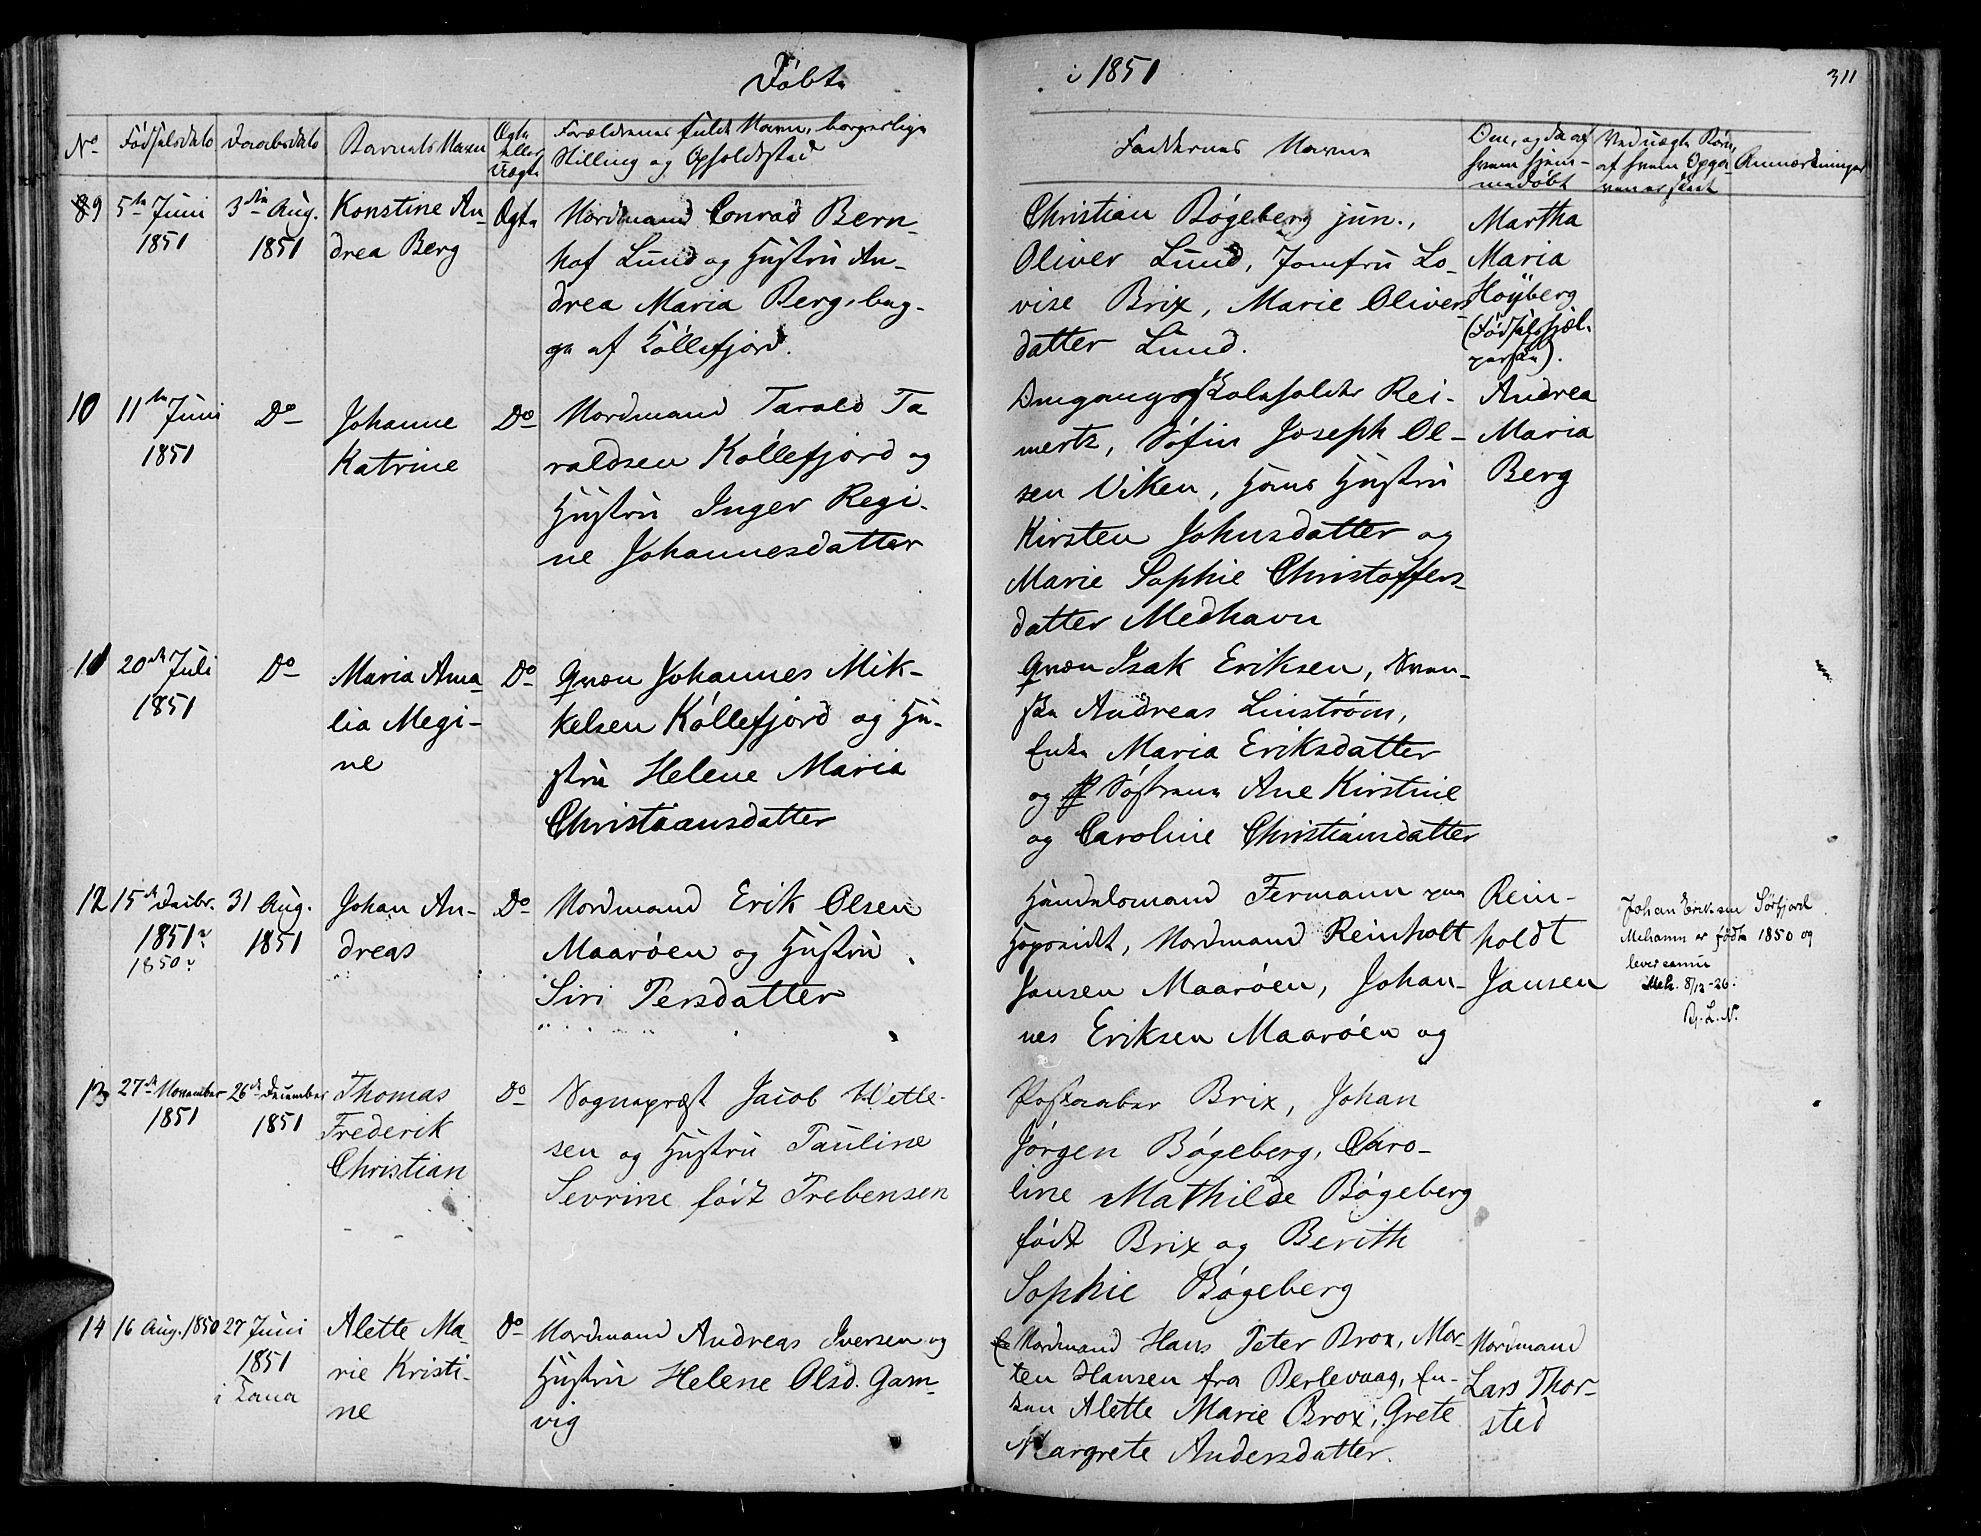 Døbte
i 1851
311
No
Fødselsdato
Daabsdato
Barnets Navn
Ægte
eller
Uægte
Forældrenes fulde Navn, borgerlige
Stilling og Opholdssted
Faddernes Navne
Om, og da af
hvem hjem-
medøbt
Ved uægte Børn,
af hvem Opga-
ven er skeet
Anmærkninger
9
5te Juni
1851
3die Aug.
1851
Konstine An-
drea Berg
Ægte
Nordmand Conrad Bern-
hof Lund og Hustru An-
drea Maria Berg, beg-
ge af Køllefjord.
Christian Bøgeberg jun.,
Oliver Lund, Jomfru Lo-
vise Brix, Marie Olivers-
datter Lund.
Martha
Maria
Høyberg
(Fødselshjæl-
perske).
10
11te Juni
1851
Do
Johanne
Katrine
Do
Nordmand Tarald Ta
raldsen Køllefjord og
Hustru Inger Regi-
ne Johannesdatter
Omgangsskoleholder Rei-
mertz, Søfin Joseph Ol-
sen Viken, Hans Hustru
Kirsten Johnsdatter og
Marie Sophie Christoffers-
datter Medhavn
Andrea
Maria
Berg
11
20de Juli
1851
Do
Maria Ama-
lia Megi-
ne
Do
Qvæn Johannes Mik-
kelsen Køllefjord og Hu-
stru Helene Maria
Christiansdatter
Qvæn Isak Eriksen, Sven-
ske Andreas Linstrøm,
Enke Maria Eriksdatter
og Søstrene Ane Kirstine
og Caroline Christiansdatter
12
15de Decbr.
1851?
1850?
31 Aug.
1851
Johan An-
dreas
Do
Nordmand Erik Olsen
Maarøen og Hustru
Siri Persdatter
Handelsmand Fermann paa
Hopseidet, Nordmand Reinholt
Jansen Maarøen, Johan-
nes Eriksen Maarøen og
Rein-
holdt
Jansen
Johan Eriksen Sørfjord
Mehamn er født 1850 og
lever ennu
Meh. 8/12-26.
Bj. L. N.
13
27de November
1851
26de December
1851
Thomas
Frederik
Christian
Do
Sognepræst Jacob Wetle-
sen og Hustru Pauline
Sevrine født Trebensen
Postaaber Brix, Johan
Jørgen Bøgeberg, Caro-
line Mathilde Bøgeberg
født Brix og Berith
Sophie Bøgeberg
14
16 Aug. 1850
27 Juni
1851
i Tana
Alette Ma-
rie Kristi-
ne
Do
Nordmand Andreas Iversen og
Hustru Helene Olsd. Gam-
vig
Nordmand Hans Peter Brox, Mor-
ten Hansen fra Berlevaag, En-
ken Alette Marie Brox, Grete
Margrete Andersdatter.
Nordmand
Lars Thor-
sted